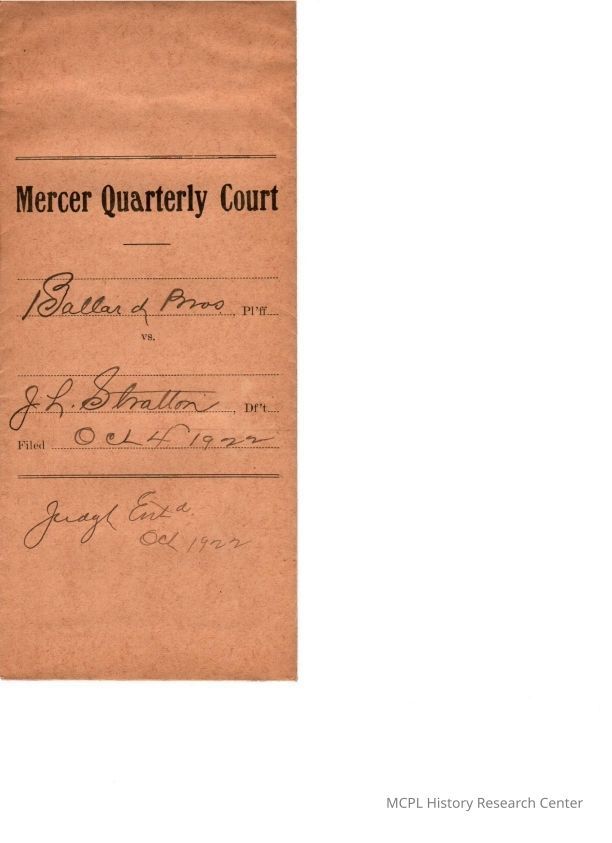 Mercer Quarterly Court
Ballard Bros. , Pl'ff
vs.
J. L. Stratton , Df't.
Filed Oct 4 1922
Judgt Ent'd.
Oct 1922
MCPL History Research Center